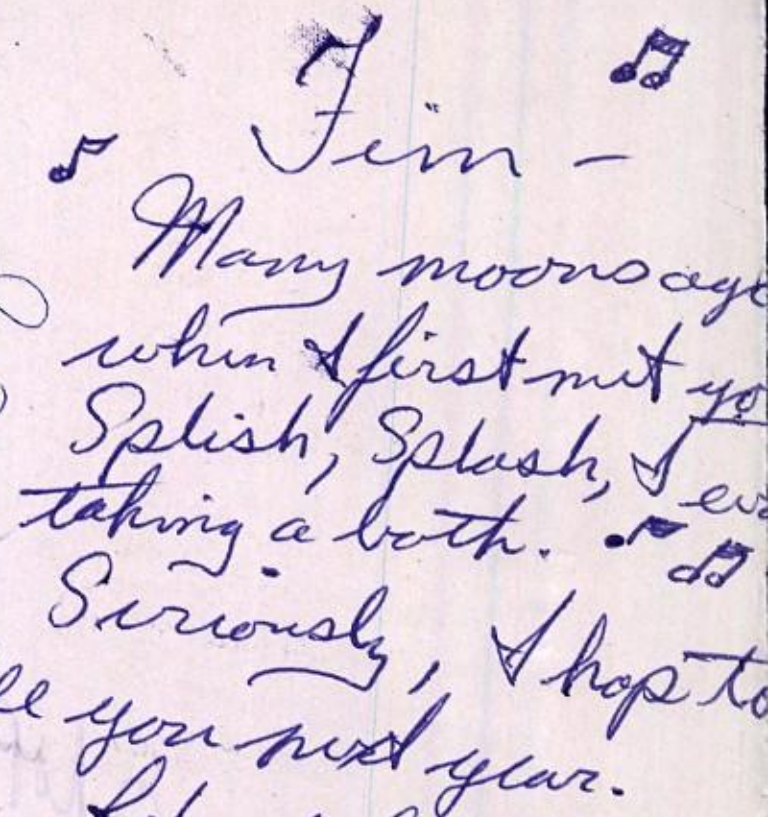 Jim -
Many moons ago
when I first met yo
Splish, Splash, I
taking a bath.
Seriously, I hop to
you next year.